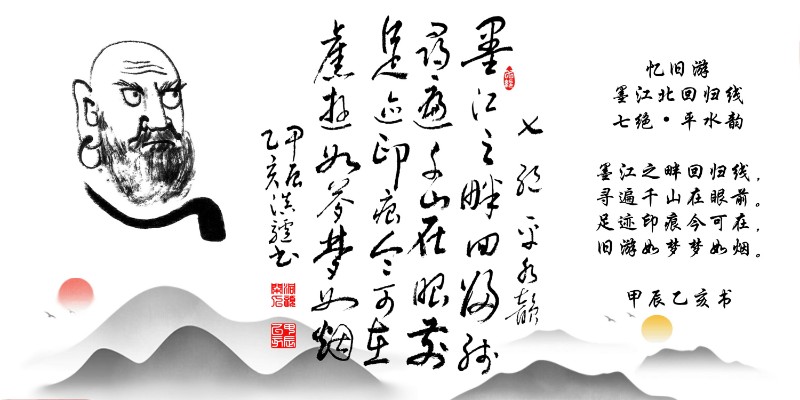 墨江之畔回归线
七绝 平水韵
寻遍千山在眼前
足迹印痕今可在
旧游如梦梦如烟
甲辰
乙亥洪驴书
忆旧游
墨江北回归线
七绝·平水韵
墨江之畔回归线，
寻遍千山在眼前。
足迹印痕今可在，
旧游如梦梦如烟。
甲辰乙亥书